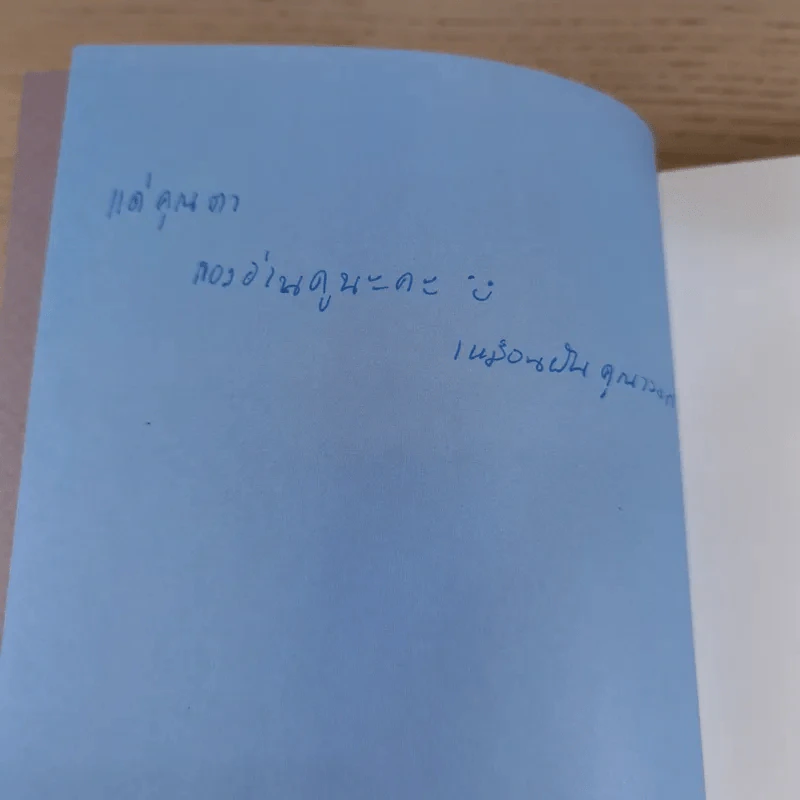 แด่คุณตา
ลองอ่านดูนะคะ
เหมือนฝัน